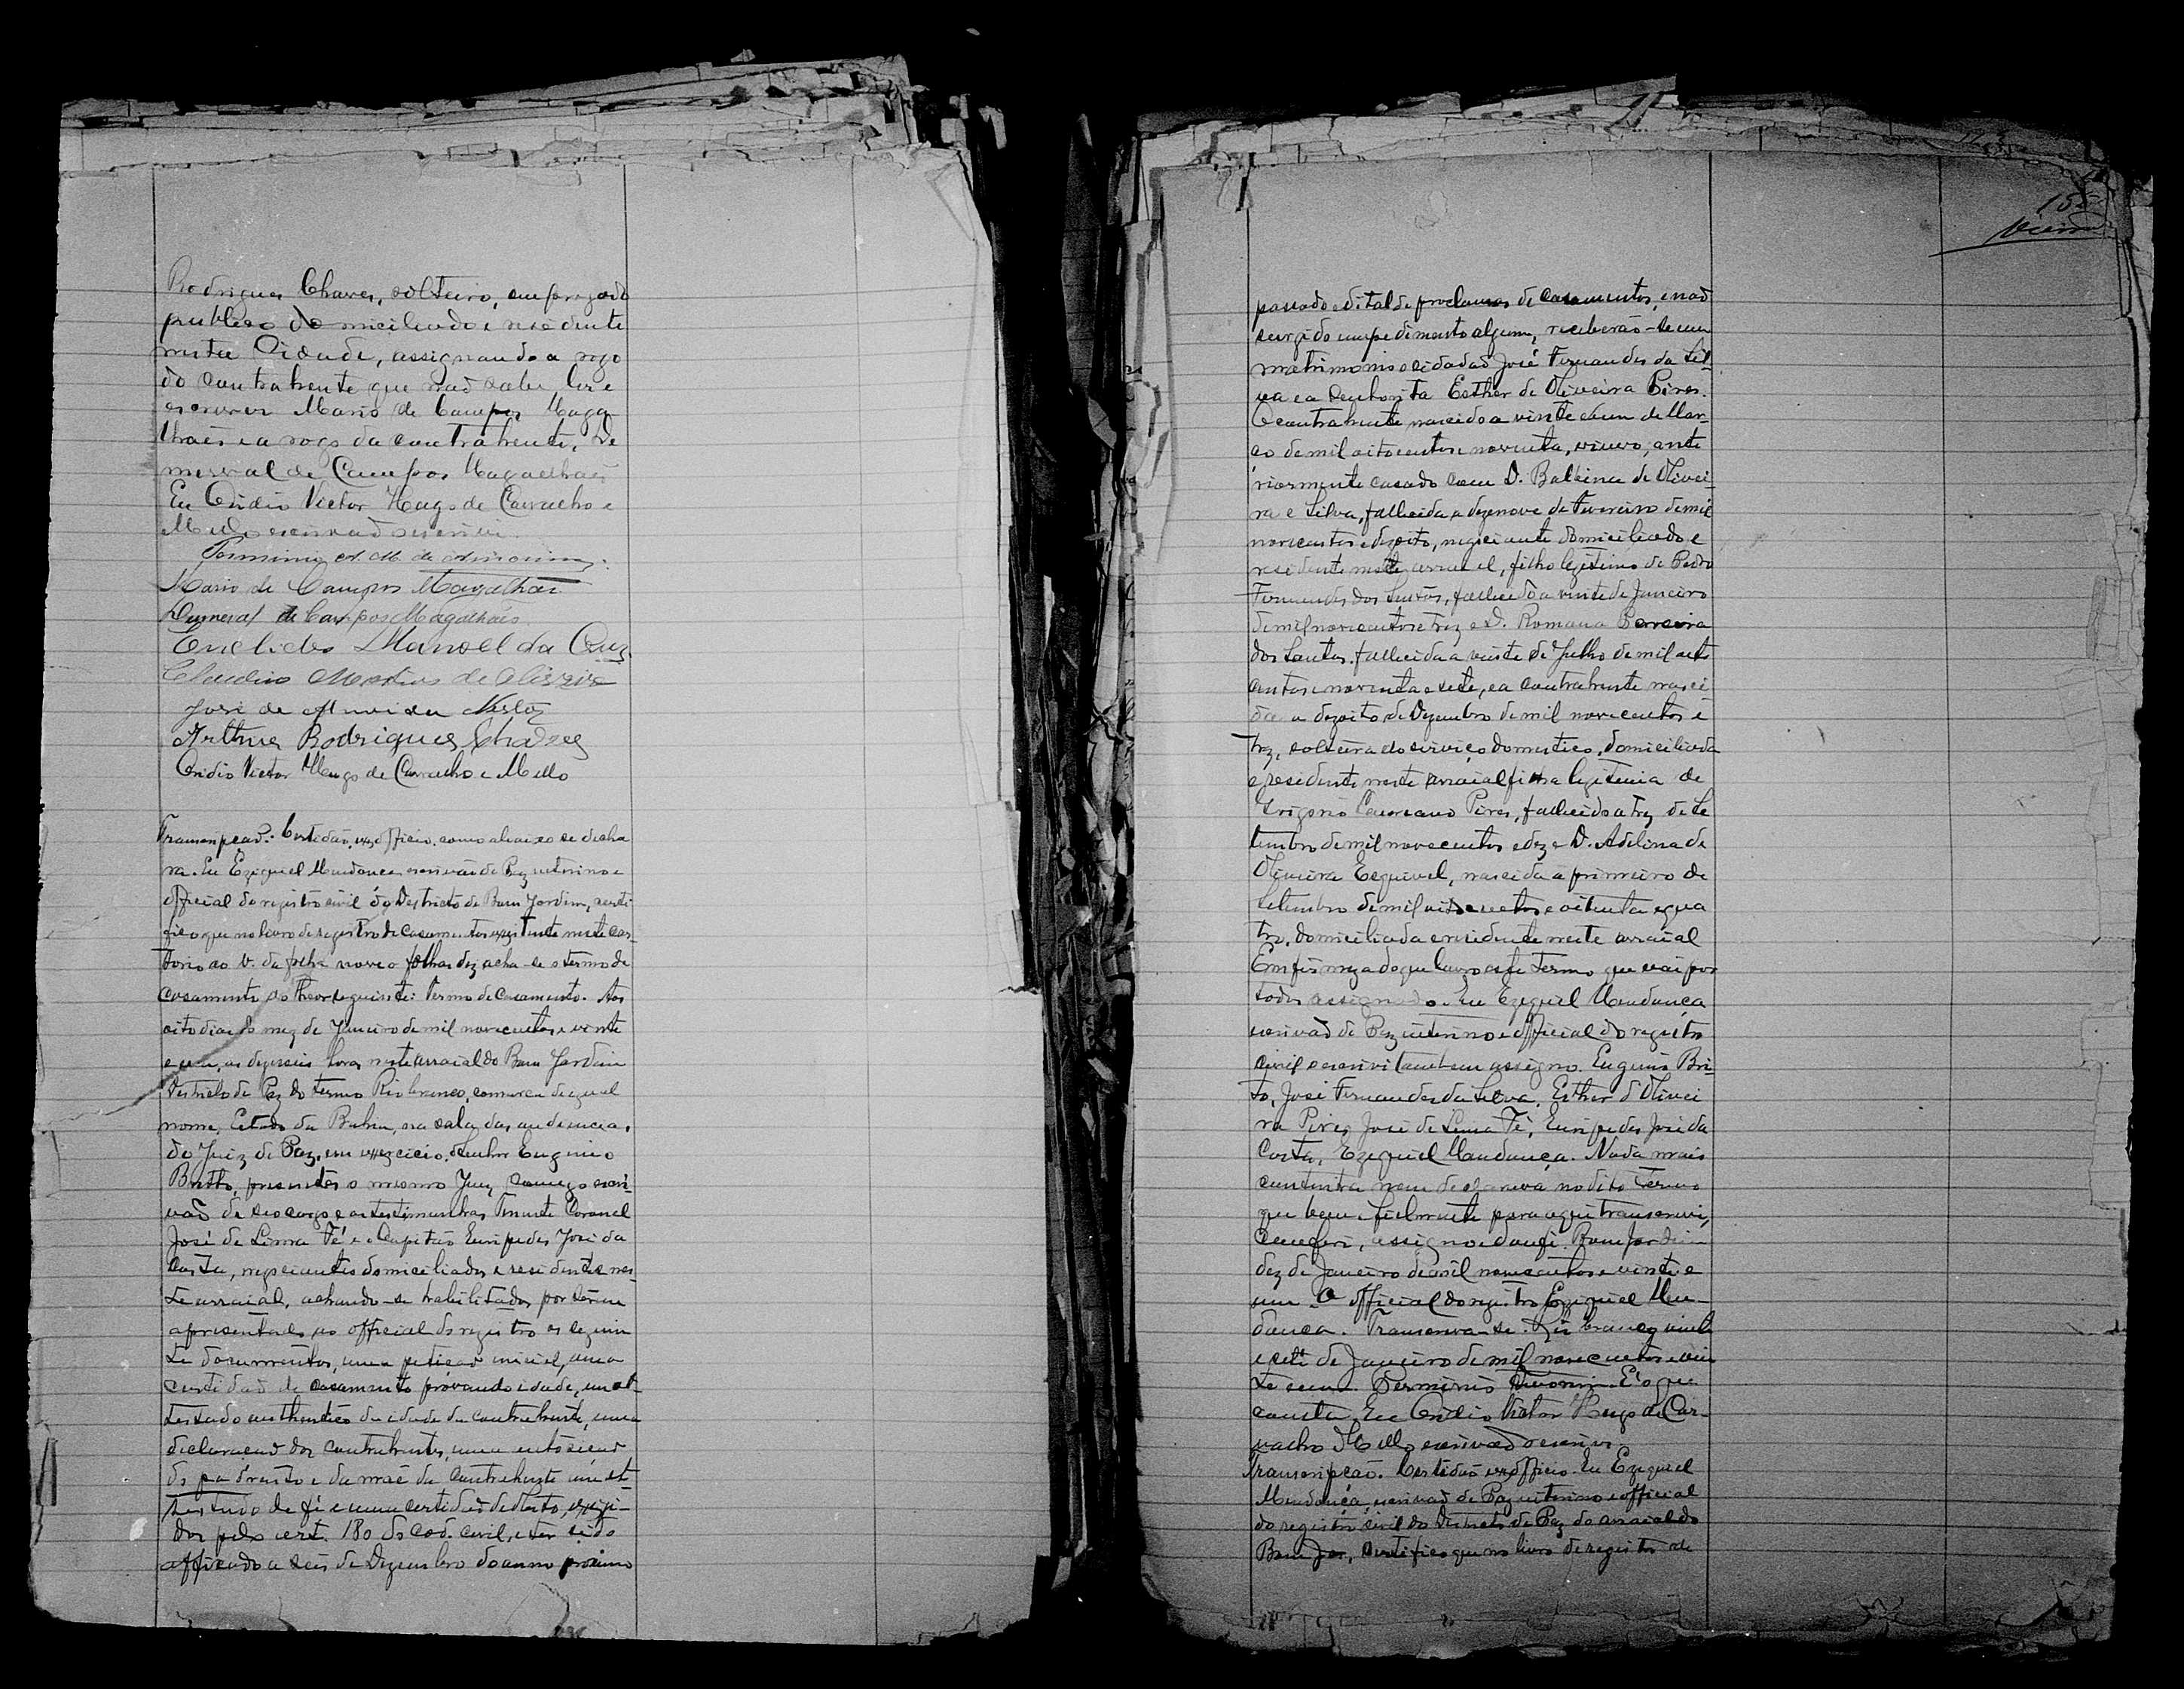 Rodrigues Chaves, solteiro, empregado
publico domiciliado e residente
nesta Cidade, assignando a rogo
do contrahente que não sabe ler e
escrever Mario de Campos Maga
lhães e a rogo da contrahente, De
merval de Campos Magalhães
Eu Ovidio Victor Hugo de Carvalho e
Mello escrivão escrevi.
Permínio A. M. de Amorim.
Mario de Campos Magalhães
Demeval de Campos Magalhães
Euclides Manoel da Cruz
Claudino Martins de Oliveira
José de Almeida
Arthur Rodrigues Chaves
Ovidio Victor Hugo de Carvalho e Mello
Transcripção. Certidão, ex-officio, como abaixo se decla
ra. Eu Ezequiel Mendonça escrivão de Paz interino e
official do registro civil do Destricto de Bom Jardim, certi
fico que no livro de registro de casamentos existente neste car-
torio ao v. da folha nove a folhas dez acha-se o termo de
casamento do theor seguinte: Termo de casamento. Aos
oito dias do mez de Janeiro de mil novecentos e vinte
e um, as dezeseis horas neste arraial do Bom Jardim
Destricto de Paz do termo Rio branco, comarca de igual
nome, Estado da Bahia, na sala das audiencias,
do Juiz de Paz, em exercicio, Senhor Eugenio
Britto, presentes o mesmo Juiz, comigo escri-
vão de seo cargo e as testimunhas Tenente Coronel
José de Lima Fé e o Capitão Euripedes José da
Costa, negociantes domiciliados e residentes nes-
te arraial, achando-se habilitados por terem
apresentado ao official do registro os seguin
te documentos, uma petição inicial, uma
certidão de casamento provando idade, um at-
testado authentico da idade da contrahente, uma
declaração dos contrahentes, uma
do padrasto e da mãe da contrahente um at
testado de fé e uma certidão de obito, exigi-
dos pelo art. 180 do Cod. civil, e ter sido
affixado a seis de Dezembro do anno proximo
155
Vieira
passado edital de proclamas de casamentos, e não
surgido impedimento algum, receberão-se em
matrimonio o cidadão José Fernandes da Sil-
va e a senhorita Esther de Oliveira Pires.
O contrahente nascido a vinte e um de Mar-
ço de mil oitocentos e noventa, viuvo, ante
riormente casado com D. Balbina de Olivei-
ra e Silva, fallecida a dezenove de Fevereiro de mil
novecentos e dezoito, negociante domiciliado e
residente neste arraial, filho legitimo de Pedro
Fernandes dos Santos, fallecido a vinte de Janeiro
de mil novecentos e trez e D. Romana Pereira
dos Santos, fallecida a vinte de Julho de mil oito
centos e noventa e sete, e a contrahente nasci
da a dezoito de Dezembro de mil novecentos e
trez, solteira do serviço domestico, domiciliada
e residente neste arraial filha legitima de
Grigorio Pires, fallecido a trez de Se
tembro de mil novecentos e dez e D. Adelina de
Oliveira Esquivel, nascida a primeiro de
Setembro de mil oitocentos e oitenta e qua
tro, domiciliada e residente neste arraial
Em firmeza do que lavro este termo que vai por
todos assignado. Eu Ezequiel Mendonça
escrivão de Paz interino e official do registro
civil escrevi e tambem assigno. Eugenio Bri-
to, José Fernandes da Silva, Esther d'Olivei
ra Pires, José de Lima Fé, Euripedes José da
Costa, Ezequiel Mendonça. Nada mais
continha nem declarava no dito Termo
que bem e fielmente para aqui transcrevi,
Conferi, assigno e dou fé. Bom Jardim
dez de Janeiro de mil novecentos e vinte e
um. O official do registro Ezequiel Men-
donça. Transcreva-se. Rio branco, vinte
e sete de Janeiro de mil novecentos e vin
te e um. Perminio Amorim. E' o que
consta. Eu Ovidio Victor Hugo de Car-
valho Mello escrivão o escrevi.
Transcripção. Certidão ex-officio. Eu Ezequiel
Mendonça, escrivão de Paz interino e official
do registro civil do Destricto de Paz do arraial do
Bom Jar, certifico que no livro de registro de